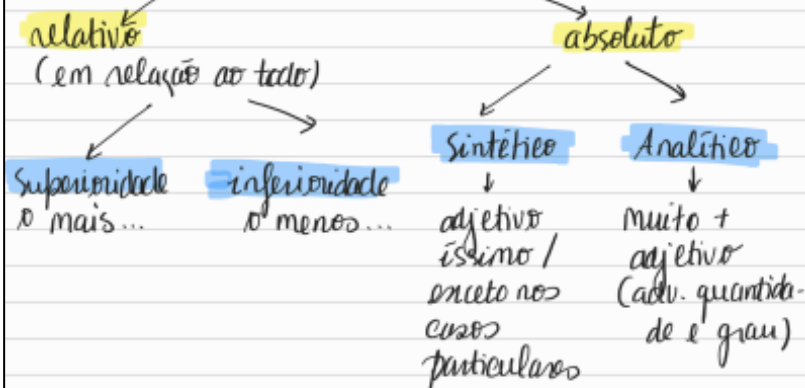 relativo
(em relação ao todo)
superioridade
o mais...
inferioridade
o menos...
absoluto
Sintético
adjetivo
íssimo /
exceto nos
casos
particulares
Analítico
muito +
adjetivo
(adv. quantida-
de e grau)